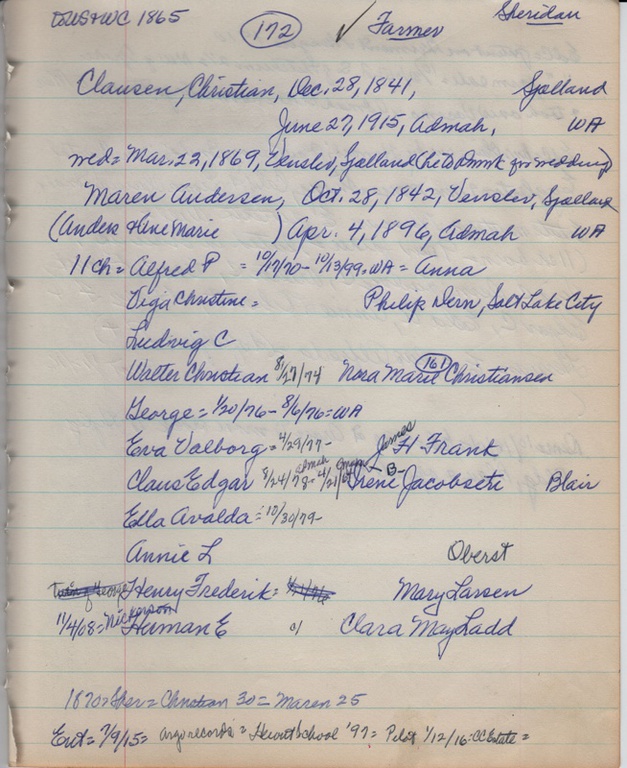 TOUS+WC 1865 (172) ✓ Farmer Sheridan
Clausen, Christian, Dec. 28, 1841, Sjolland
June 27, 1915, Admah, WA
med= Mar. 22, 1869, Venslev, Sjolland
Maren Andersen, Oct. 28, 1842, Venslev, Sjolland
(Anders + Ane Marie ) Apr. 4, 1896, Admah WA
11 ch= Alfred P = 10/17/70- 10/13/99=WA = Anna
Viga Christine = Philip Dern, Salt Lake City
Ludwig C
Walter Christian 8/27/74 Nora Marie (161) Christiansen
George= 1/20/76- 8/6/76=WA
Eva Valborg= 4/29/77- James H Frank
Claus Edgar 8/24/78= Admah 4/21/ Irene -B- Jacobsen Blair
Ella Avalda= 10/30/79-
Annie L Oberst
Twin of George Henry Frederik= Mary Larsen
11/4/08= Nickerson Herman E o/ Clara May Ladd
1870=Sher= Christian 30= Maren 25
Ent= 7/9/15= Argo records= School '97= Pilot 1/12/16: CC Estate=